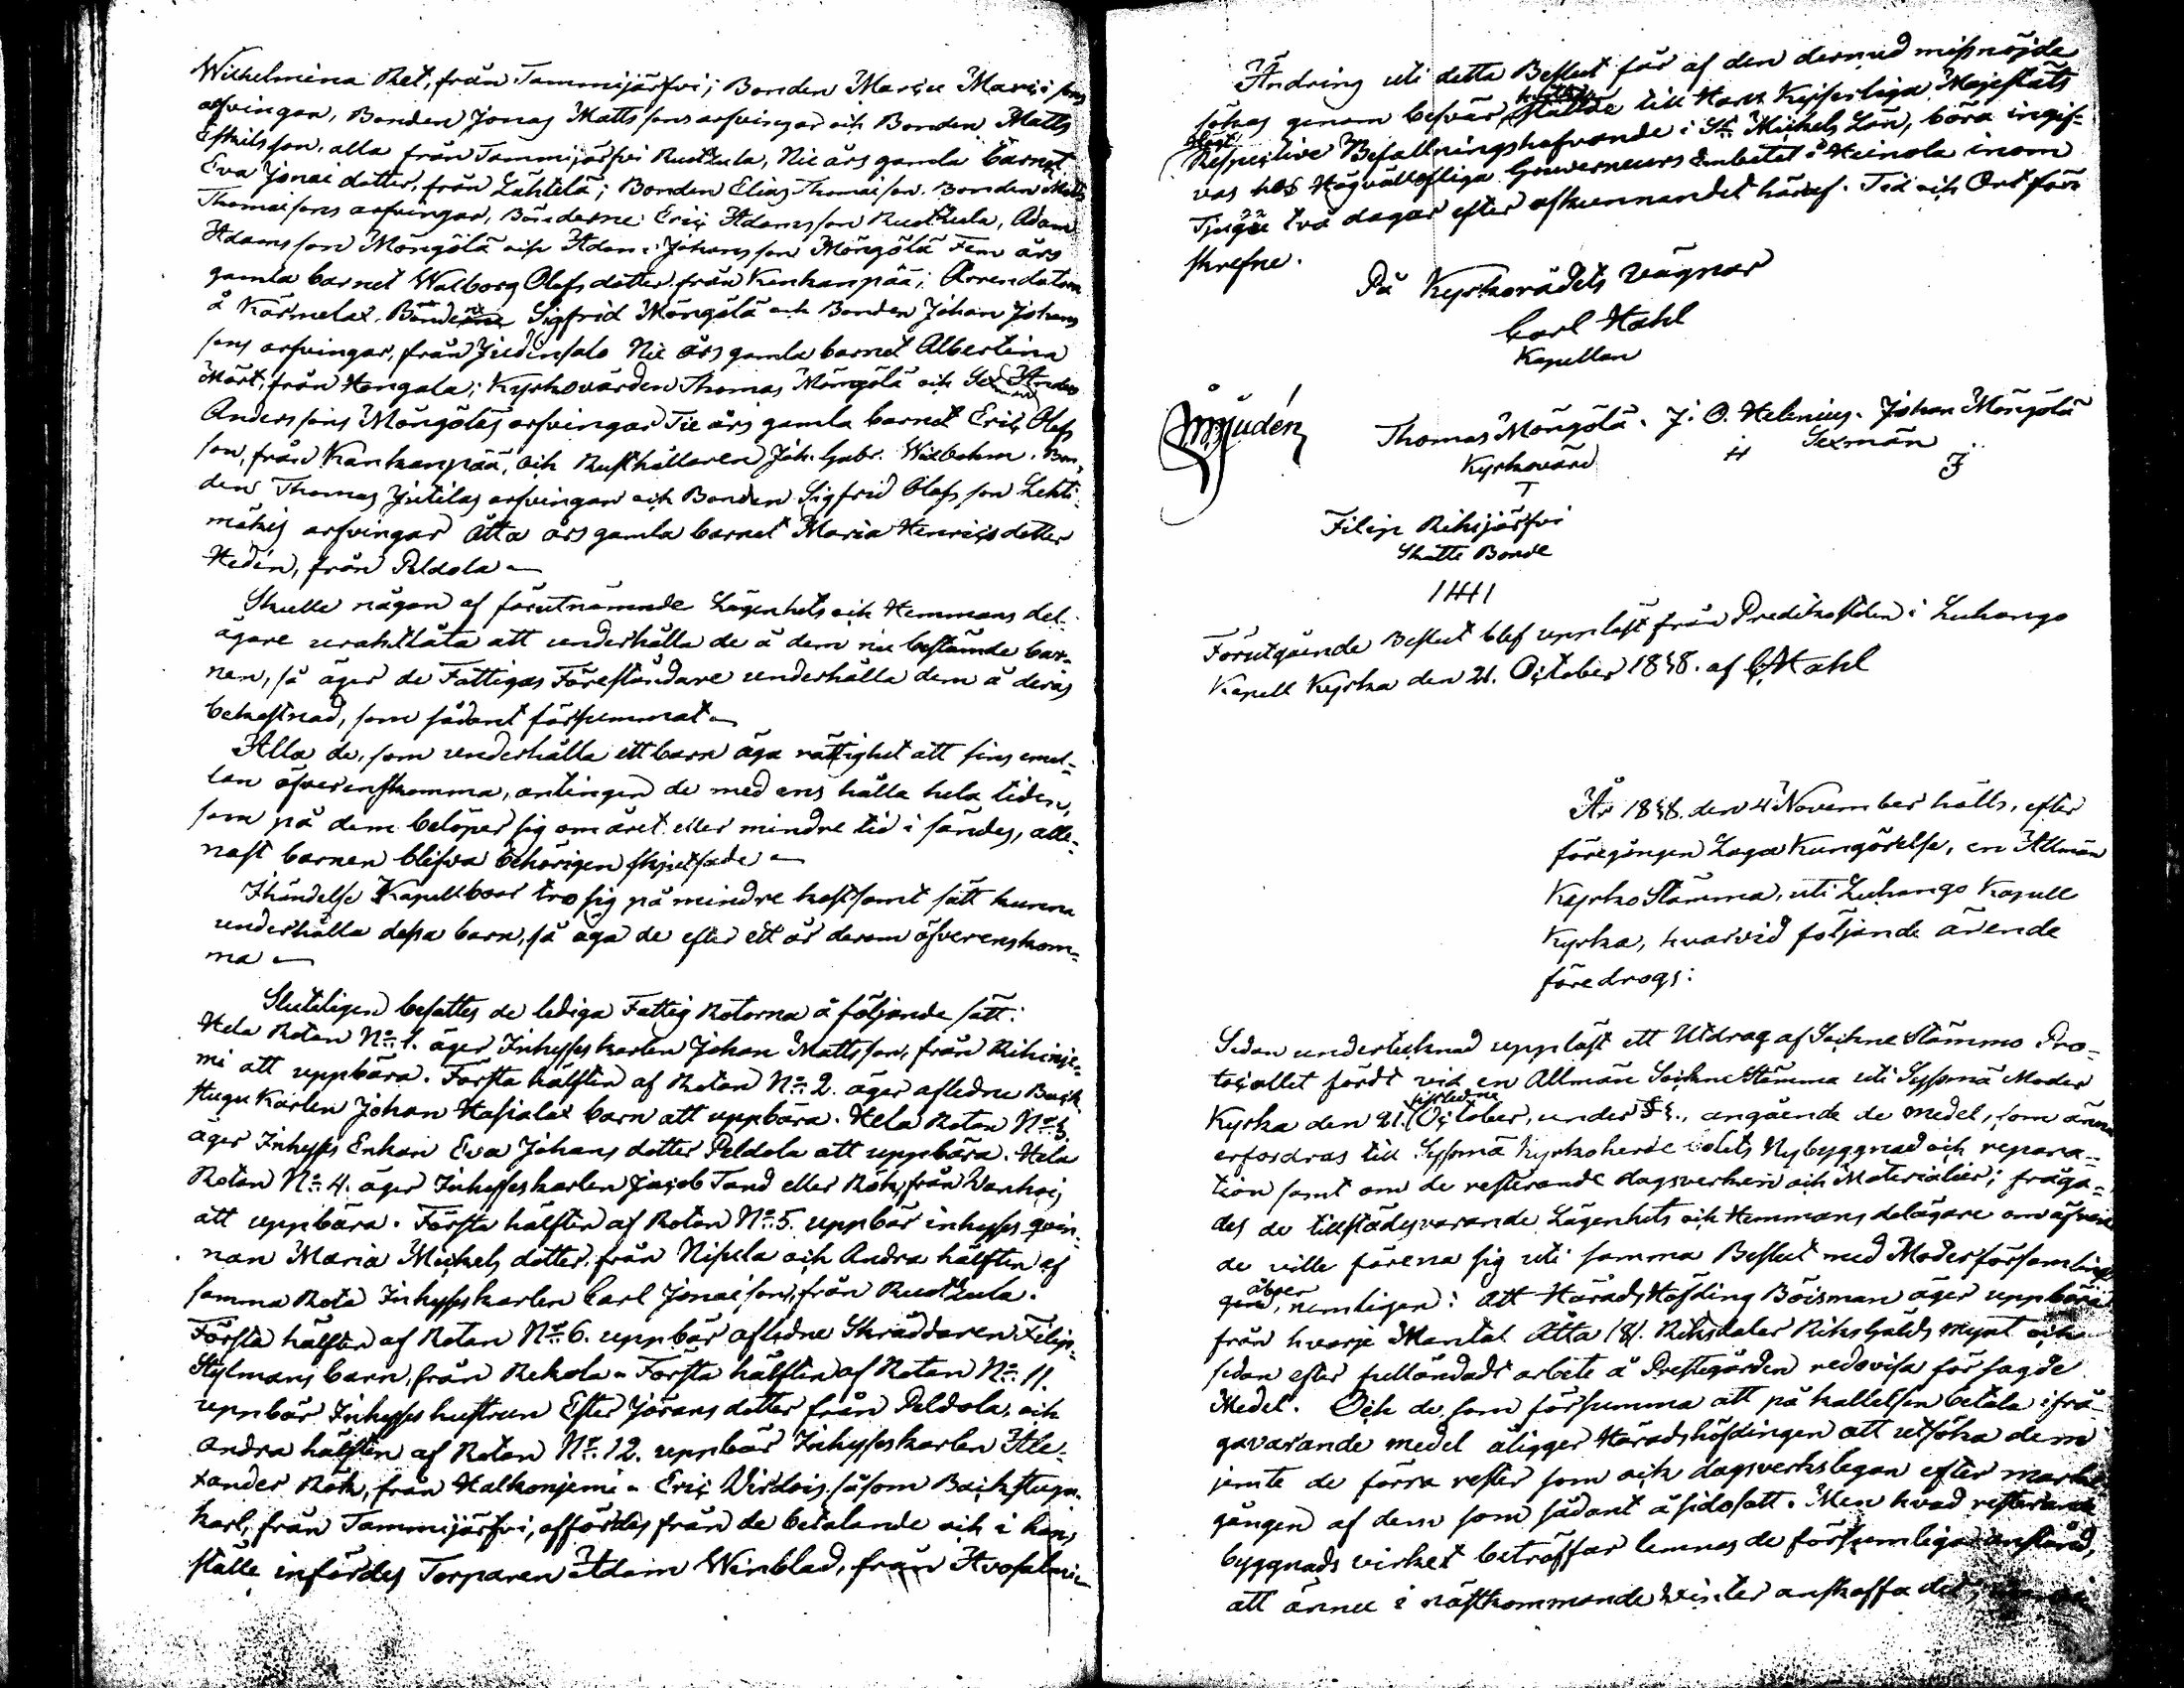 Wilhelmina Ret, från Tammijärfvi; Bonden Marcu Marci sons
arfvingar, Bonden Jonas Matts sons arfvingar och Bonden Matts
Eskilsson, alla från Tammijärfvi Ruottula, Nie års gamla barnet
Eva Jonae dotter, från Lähtelä; Bonden Elias Thomæson, Bonden Matts
Thomæsons arfvingar, Bönderne Eric Adamsson Ruottula, Adam
Adamsson Möngölä och Adam Johansson Möngölä Fem års
gamla barnet Walborg Olofsdotter från Kankanpää; Arrendatorn
å Kärmelax, Bonden Sigfrid Möngölä och Bonden Johan Johans
sons arfvingar, från Judinsalo Nie års gamla barnet Albertina
Mört, från Hangala; Kyrkovärden Thomas Möngölä och Sexman Anders
Anderssons Möngöläs arfvingar Tie års gamla barnet Eric Olofs
son, från Kankanpää, och Rusthållaren Joh. Gabr. Widbohm, Bon¬
den Thomas Jutilas arfvingar och Bonden Sigfrid Olofsson Lehti¬
mäkis arfvingar Åtta års gamla barnet Maria Henricsdotter
Hedén, från Peldola
Skulle någon af förutnämnde Lägenhets och Hemmans del¬
ägare uraktlåta att underhålla de å dem nu bestämde bar¬
nen, så äger de Fattigas Föreståndare underhålla dem å deras
bekostnad, som sådant försummat
Alla de, som underhålla ett barn äga rättighet att sins emel¬
lan öfverenskomma, antingen de med ens hålla hela tiden,
som på dem belöper sig om året eller mindre tid i sändes, alle¬
nast barnen blifva behörigen skjutsade
I händelse Kapellboar tro sig på mindre kostsamt sätt kunna
underhålla dessa barn, så äga de efter ett år derom öfverenskom¬
ma
Slutligen besattes de lediga Fattig Rotorna å följande sätt:
Hela Rotan No 1. äger Inhyses karlen Johan Mattsson, från Rihinie¬
mi att uppbära. Första hälften af Rotan No 2. äger aflidne Back
stugu Karlen Johan Hasialax barn att uppbära. Hela Rotan No 3.
äger Inhyses Enkan Eva Johans dotter Peldola att uppbära. Hela
Rotan No 4. äger Inhyses karlen Jacob Tand eller Rök, från Wanhoi,
att uppbära. Första hälften af Rotan No 5. uppbär inhyses qvin¬
nan Maria Mickels dotter från Nisula och Andra hälften af
samma Rota Inhyses karlen Carl Jonaeson, från Ruottula.
Första hälften af Rotan No 6. uppbär aflidne Skräddaren Filip
Stylmans barn, från Rekola. Första hälften af Rotan No 11.
uppbär Inhyses hustrun Ester Jörans dotter från Peldola, och
andra hälften af Rotan No 12. uppbär Inhyses karlen Ale¬
xander Rök, från Halkoniemi. Eric Virdois, såsom Backstugu
karl, från Tammijärfvi, affördes från de betalande och i hans
ställe infördes Torparen Adam Winblad, från Avosalmi
Ändring uti detta Beslut får af den dermed missnöjde
sökas genom besvär, ställde till Hans Kejserliga Majestäts
Respective Befallningshafvande i St Michels Län, böra ingif¬
vas hos Högvällofliga Gouverneurs Embetet i Heinola inom
Tjugu två dagar efter afkunnandet häraf. Tid och Ort före
skrefne.
På Kyrkorådets vägnar
Carl Hahl
Kapellan
Thomas Möngölä. J. O. Helenius. Johan Möngölä
Kyrkovärd
Sexmän
Filip Rihijärfvi
Skatte Bonde
Förutgående Beslut blef uppläst från Predikostolen i Luhango
Kapell Kyrka den 21. October 1838. af C. Hahl
År 1838. den 4 November hölls, efter
föregången Laga Kungörelse, en Allmän
KyrkoStämma, uti Luhango Kapell
Kyrka, hvarvid följande ärende
föredrogs:
Sedan undertecknad uppläst ett Utdrag af Sockne Stämmo Pro¬
tocollet fördt vid en Allmän Sockne Stämma uti Sysmä Moder
Kyrka den 21. sistledne October, angående de medel, som ännu
erfordras till Sysmä Kyrkoherde bolets Nybyggnad och repara¬
tion samt om de resterande dagsverken och Materialier; fråga¬
des de tillstädesvarande Lägenhets och Hemmans delägare om äfven
de ville förena sig uti samma Beslut med Moderförsamlin
gens åboer, nemligen: att HäradsHöfding Boisman äger uppbära
från hvarje Mantal Åtta /8/. Riksdaler Riksgälds mynt och
sedan efter fulländadt arbete å Prestegården redovisa för sagde
Medel. Och de, som försumma att på kallelsen betala ifrå¬
gavarande medel åligger Häradshöfdingen att utsöka dem
jemte de förra rester som och dagsverkslegan efter marke
gången af dem som sådant åsidosatt. Men hvad resterande
byggnads virket beträffar lemnas de försumliga anstånd,
att ännu i nästkommande vinter anskaffa det